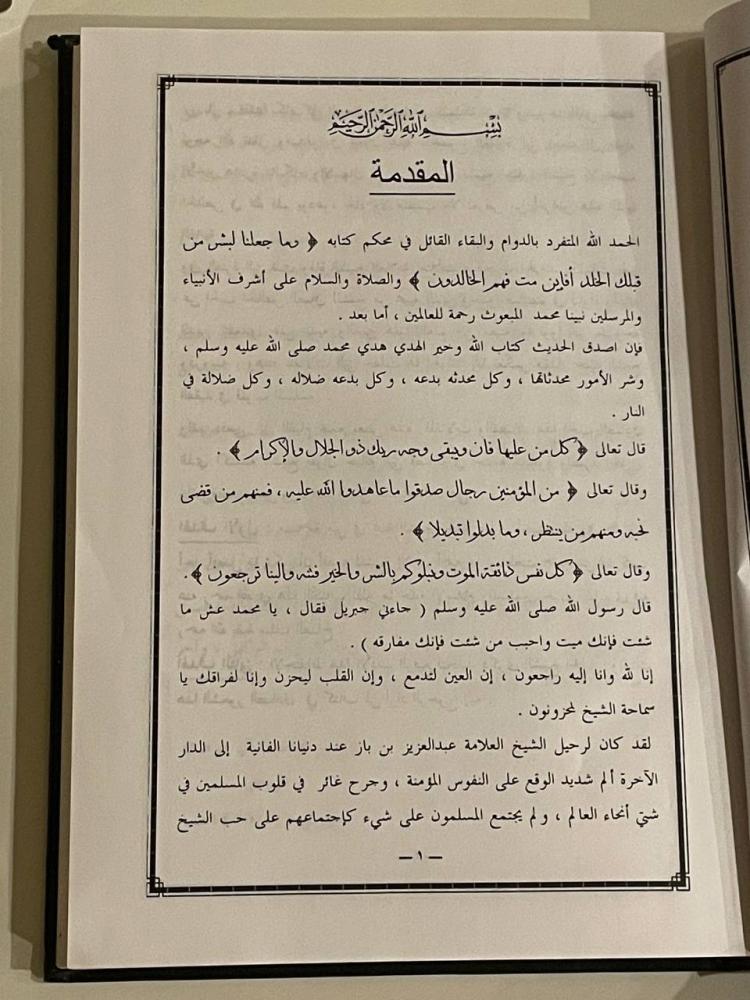 بسم الله الرحمن الرحيم
المقدمة
الحمد الله المتفرد بالدوام والبقاء القائل في محكم كتابه ﴿ وما جعلنا لبشر من
قبلك الخلد أفاين مت فهم الخالدون ﴾ والصلاة والسلام على أشرف الأنبياء
والمرسلين نبينا محمد المبعوث رحمة للعالمين ، أما بعد .
فإن اصدق الحديث كتاب الله وحير الهدي هدي محمد صلى الله عليه وسلم ،
وشر الأمور محدثاتها ، وكل محدثه بدعه ، وكل بدعه ضلاله ، وكل ضلالة في
النار .
قال تعالى ﴿ كل من عليها فان ويبقى وجه ربك ذو الجلال والإكرام ﴾ .
وقال تعالى ﴿ من المؤمنين رجال صدقوا ما عاهدوا الله عليه ، فمنهم من قضى
نحبه ومنهم من ينتظر ، وما بدلوا تبديلا ﴾ .
وقال تعالى ﴿ كل نفس ذائقة الموت ونبلوكم بالشر والخير فتنه والينا ترجعون ﴾ .
قال رسول الله صلى الله عليه وسلم ( حاءني جبريل فقال ، يا محمد عش ما
شئت فإنك ميت واحبب من شئت فإنك مفارقه ) .
إنا لله وانا إليه راجعون ، إن العين لتدمع ، وإن القلب ليحزن وإنا لفراقك يا
سماحة الشيخ لمحزونون .
لقد كان لرحيل الشيخ العلامة عبدالعزيز بن باز عند دنيانا الفانية إلى الدار
الآخرة ألم شديد الوقع على النفوس المؤمنة ، وجرح غائر في قلوب المسلمين في
شتى أنحاء العالم ، ولم يجتمع المسلمون على شيء كإجتماعهم على حب الشيخ
— ١ —